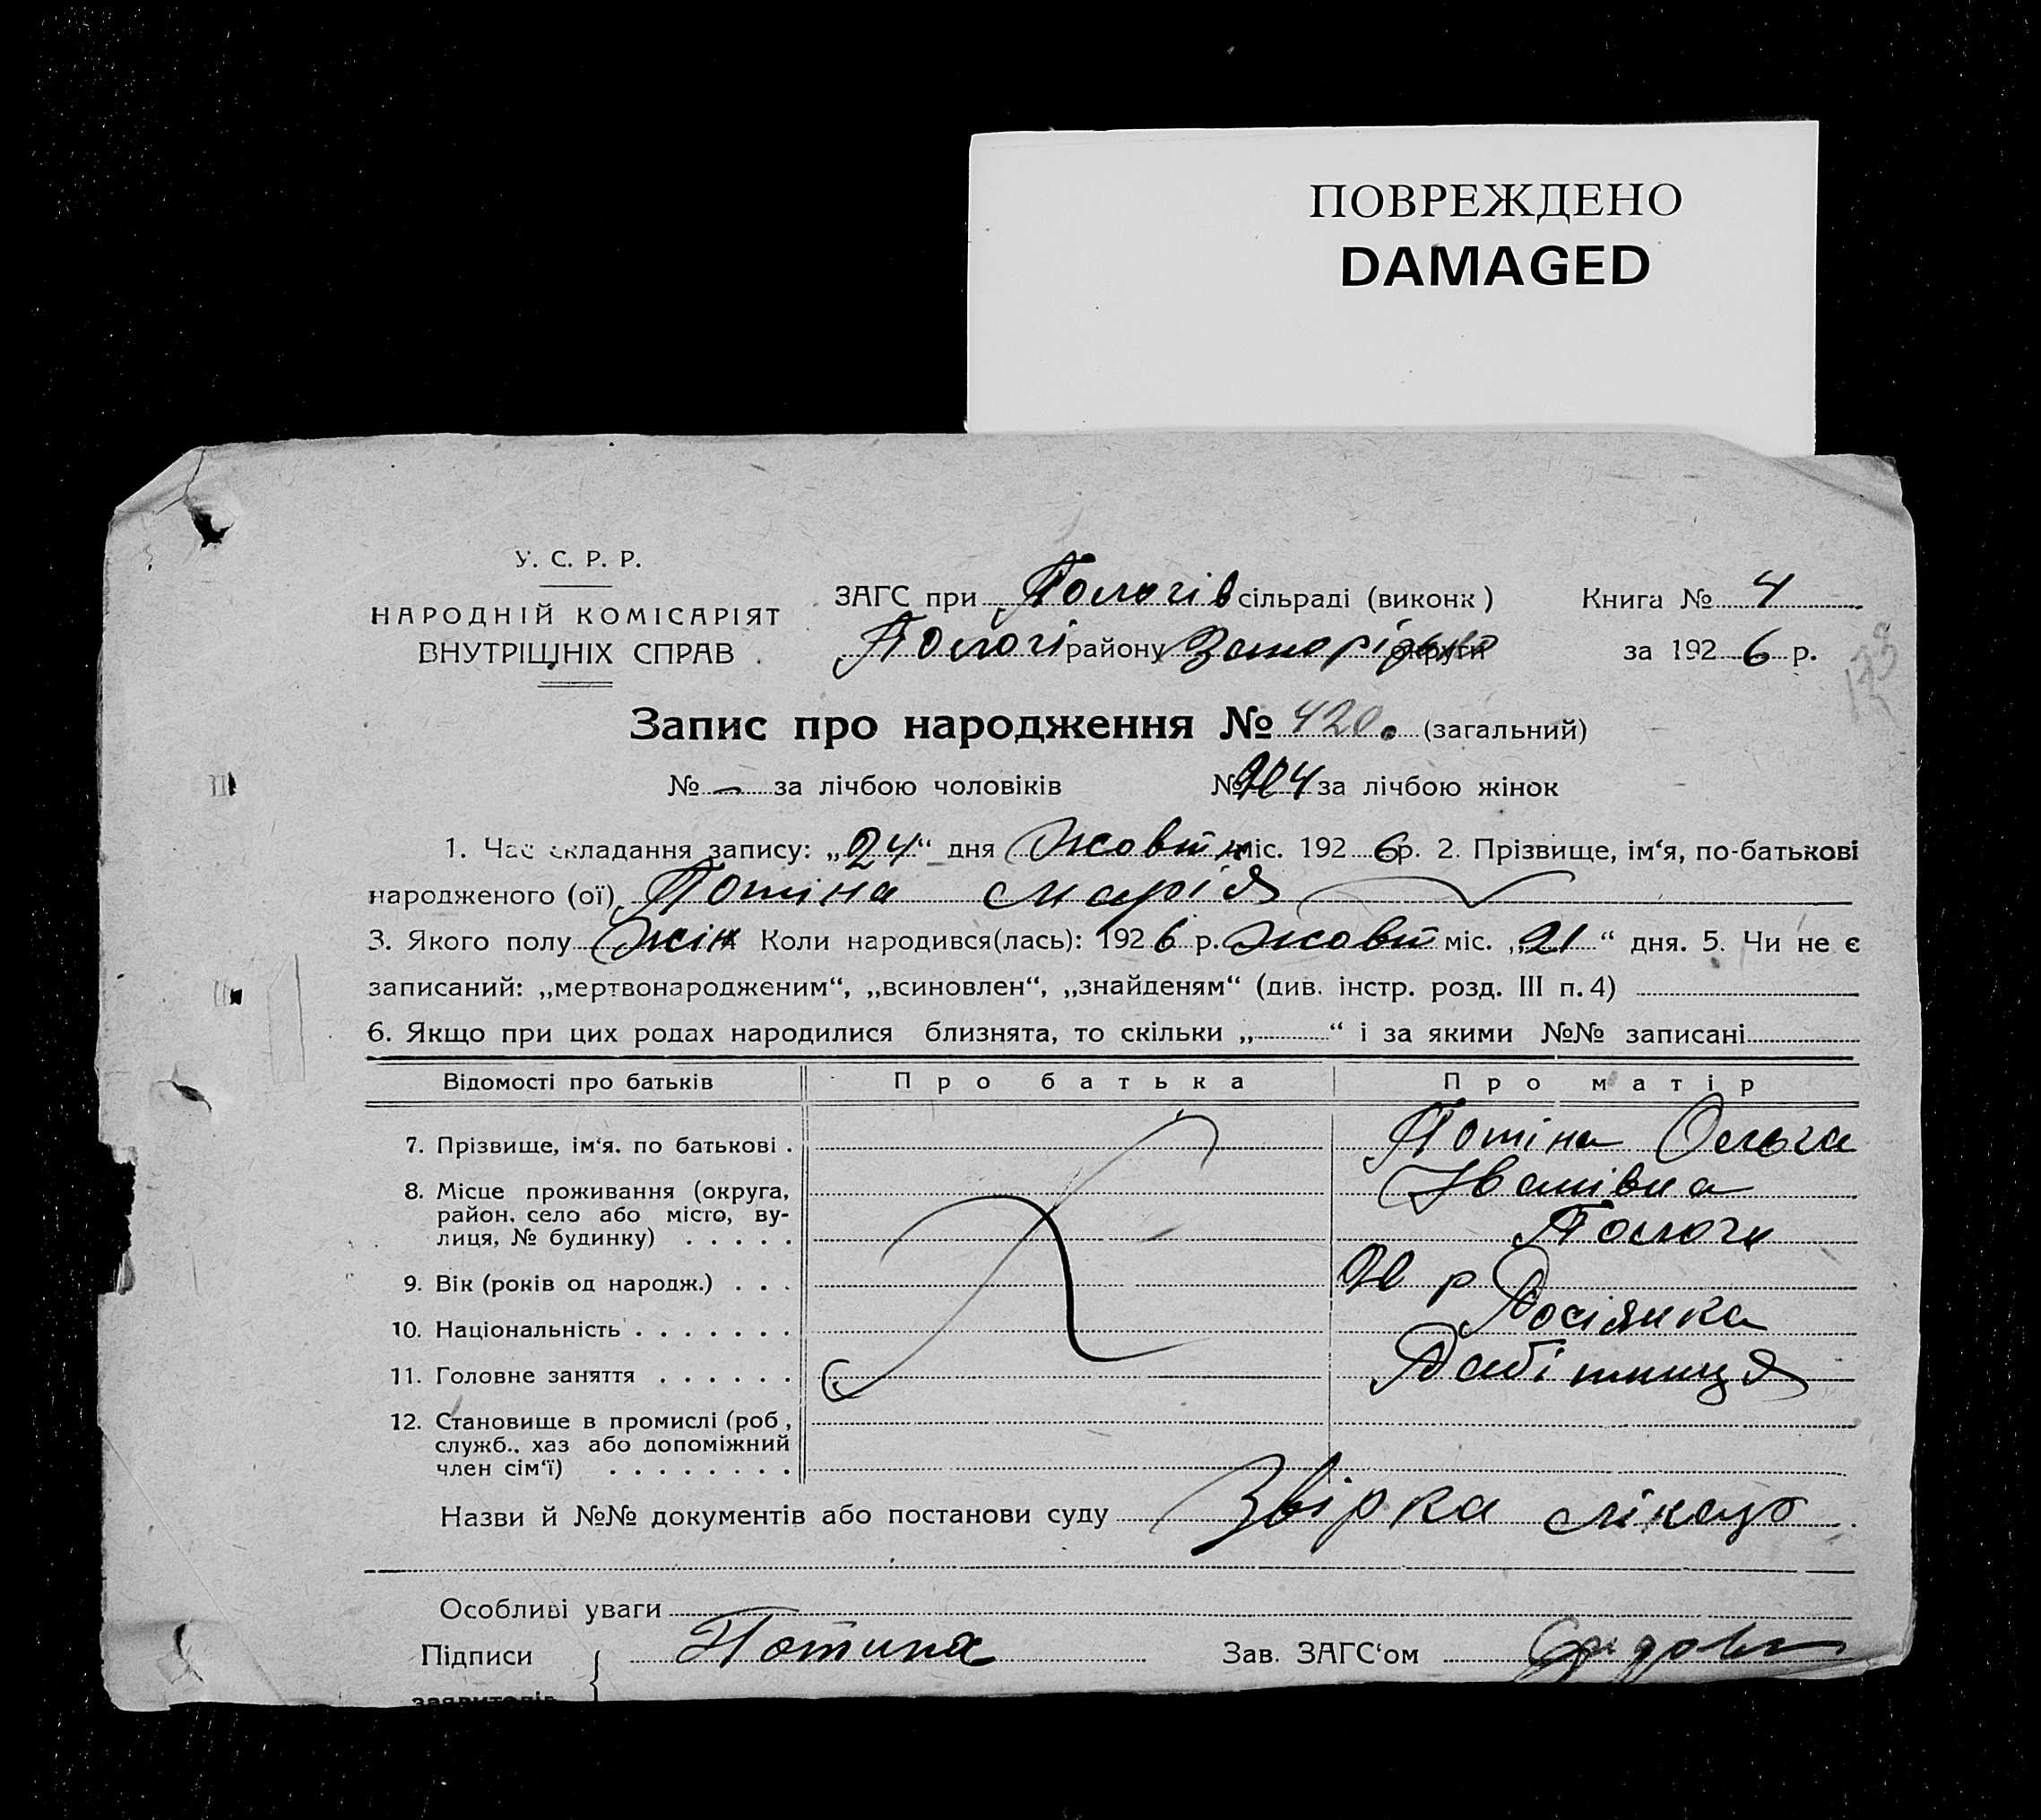 ПОВРЕЖДЕНО
DAMAGED
У. С. Р. Р.
НАРОДНІЙ КОМІСАРІЯТ
ВНУТРІШНІХ СПРАВ
ЗАГС при Пологів сільраді (виконк)
Пологі району Запоріжько округи
Книга № 4
за 1926 р.
Запис про народження № 420. (загальний)
№ — за лічбою чоловіків № 204 за лічбою жінок
1. Час складання запису: „24“ дня Жовтн міс. 1926 р. 2. Прізвище, ім‘я, по-батькові
народженого (ої) Потіна Марія
3. Якого полу жін 4 Коли народився(лась): 1926 р. жовт міс. „21“ дня. 5. Чи не є
записаний: „мертвонародженим“, „всиновлен“, „знайденям“ (див. інстр. розд. III п. 4)
6. Якщо при цих родах народилися близнята, то скільки „ “ і за якими №№ записані
Відомості про батьків Про батька Про матір
7. Прізвище, ім‘я. по батькові . Потіна Ольга
Іванівна
8. Місце проживання (округа,
район. село або місто, ву-
лиця, № будинку) . . . . . Пологи
9. Вік (років од народж.) . . . 20 р
10. Національність . . . . . . . Росіянка
11. Головне заняття . . . . . . Работниця
12. Становище в промислі (роб,
служб., хаз або допоміжний
член сім‘ї) . . . . . . . .
Назви й №№ документів або постанови суду Звірка лікар
Особливі уваги
Підписи Потина Зав. ЗАГС‘ом
заявителів